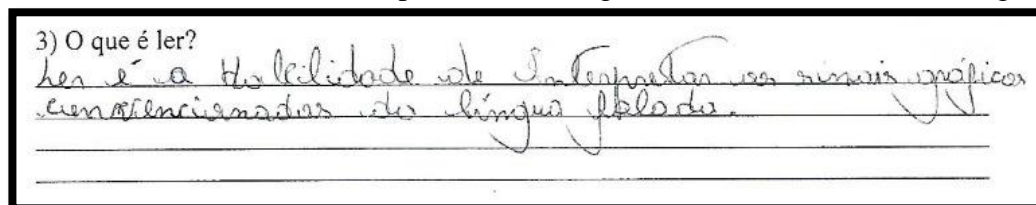 3) O que é ler?
Ler é a Habilidade de Interpretar os sinais gráficos
convencionados da língua falada.